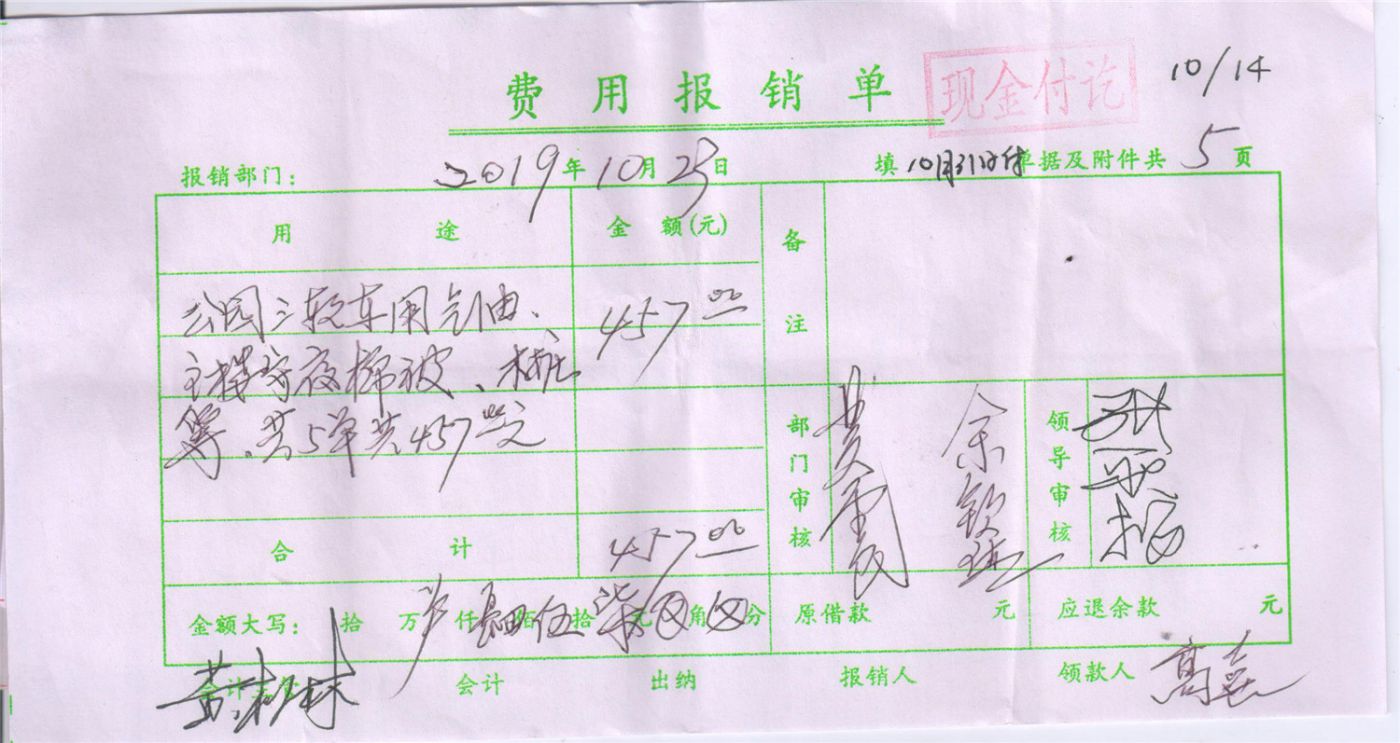 费用报销单
现金付讫
10/14
报销部门: 2019年10月25日 填 10月31日付 单据及附件共 5 页
用途 金额(元) 备注
公园三轮车用汽油、 457.00
守夜棉被、
等、共5单共457元
部门审核 余 领导审核
合计 457.00
金额大写: 拾 万 仟 肆佰 伍拾 柒元 角 分 原借款 元 应退余款 元
会计主管 会计 出纳 报销人 领款人
黄 林 高